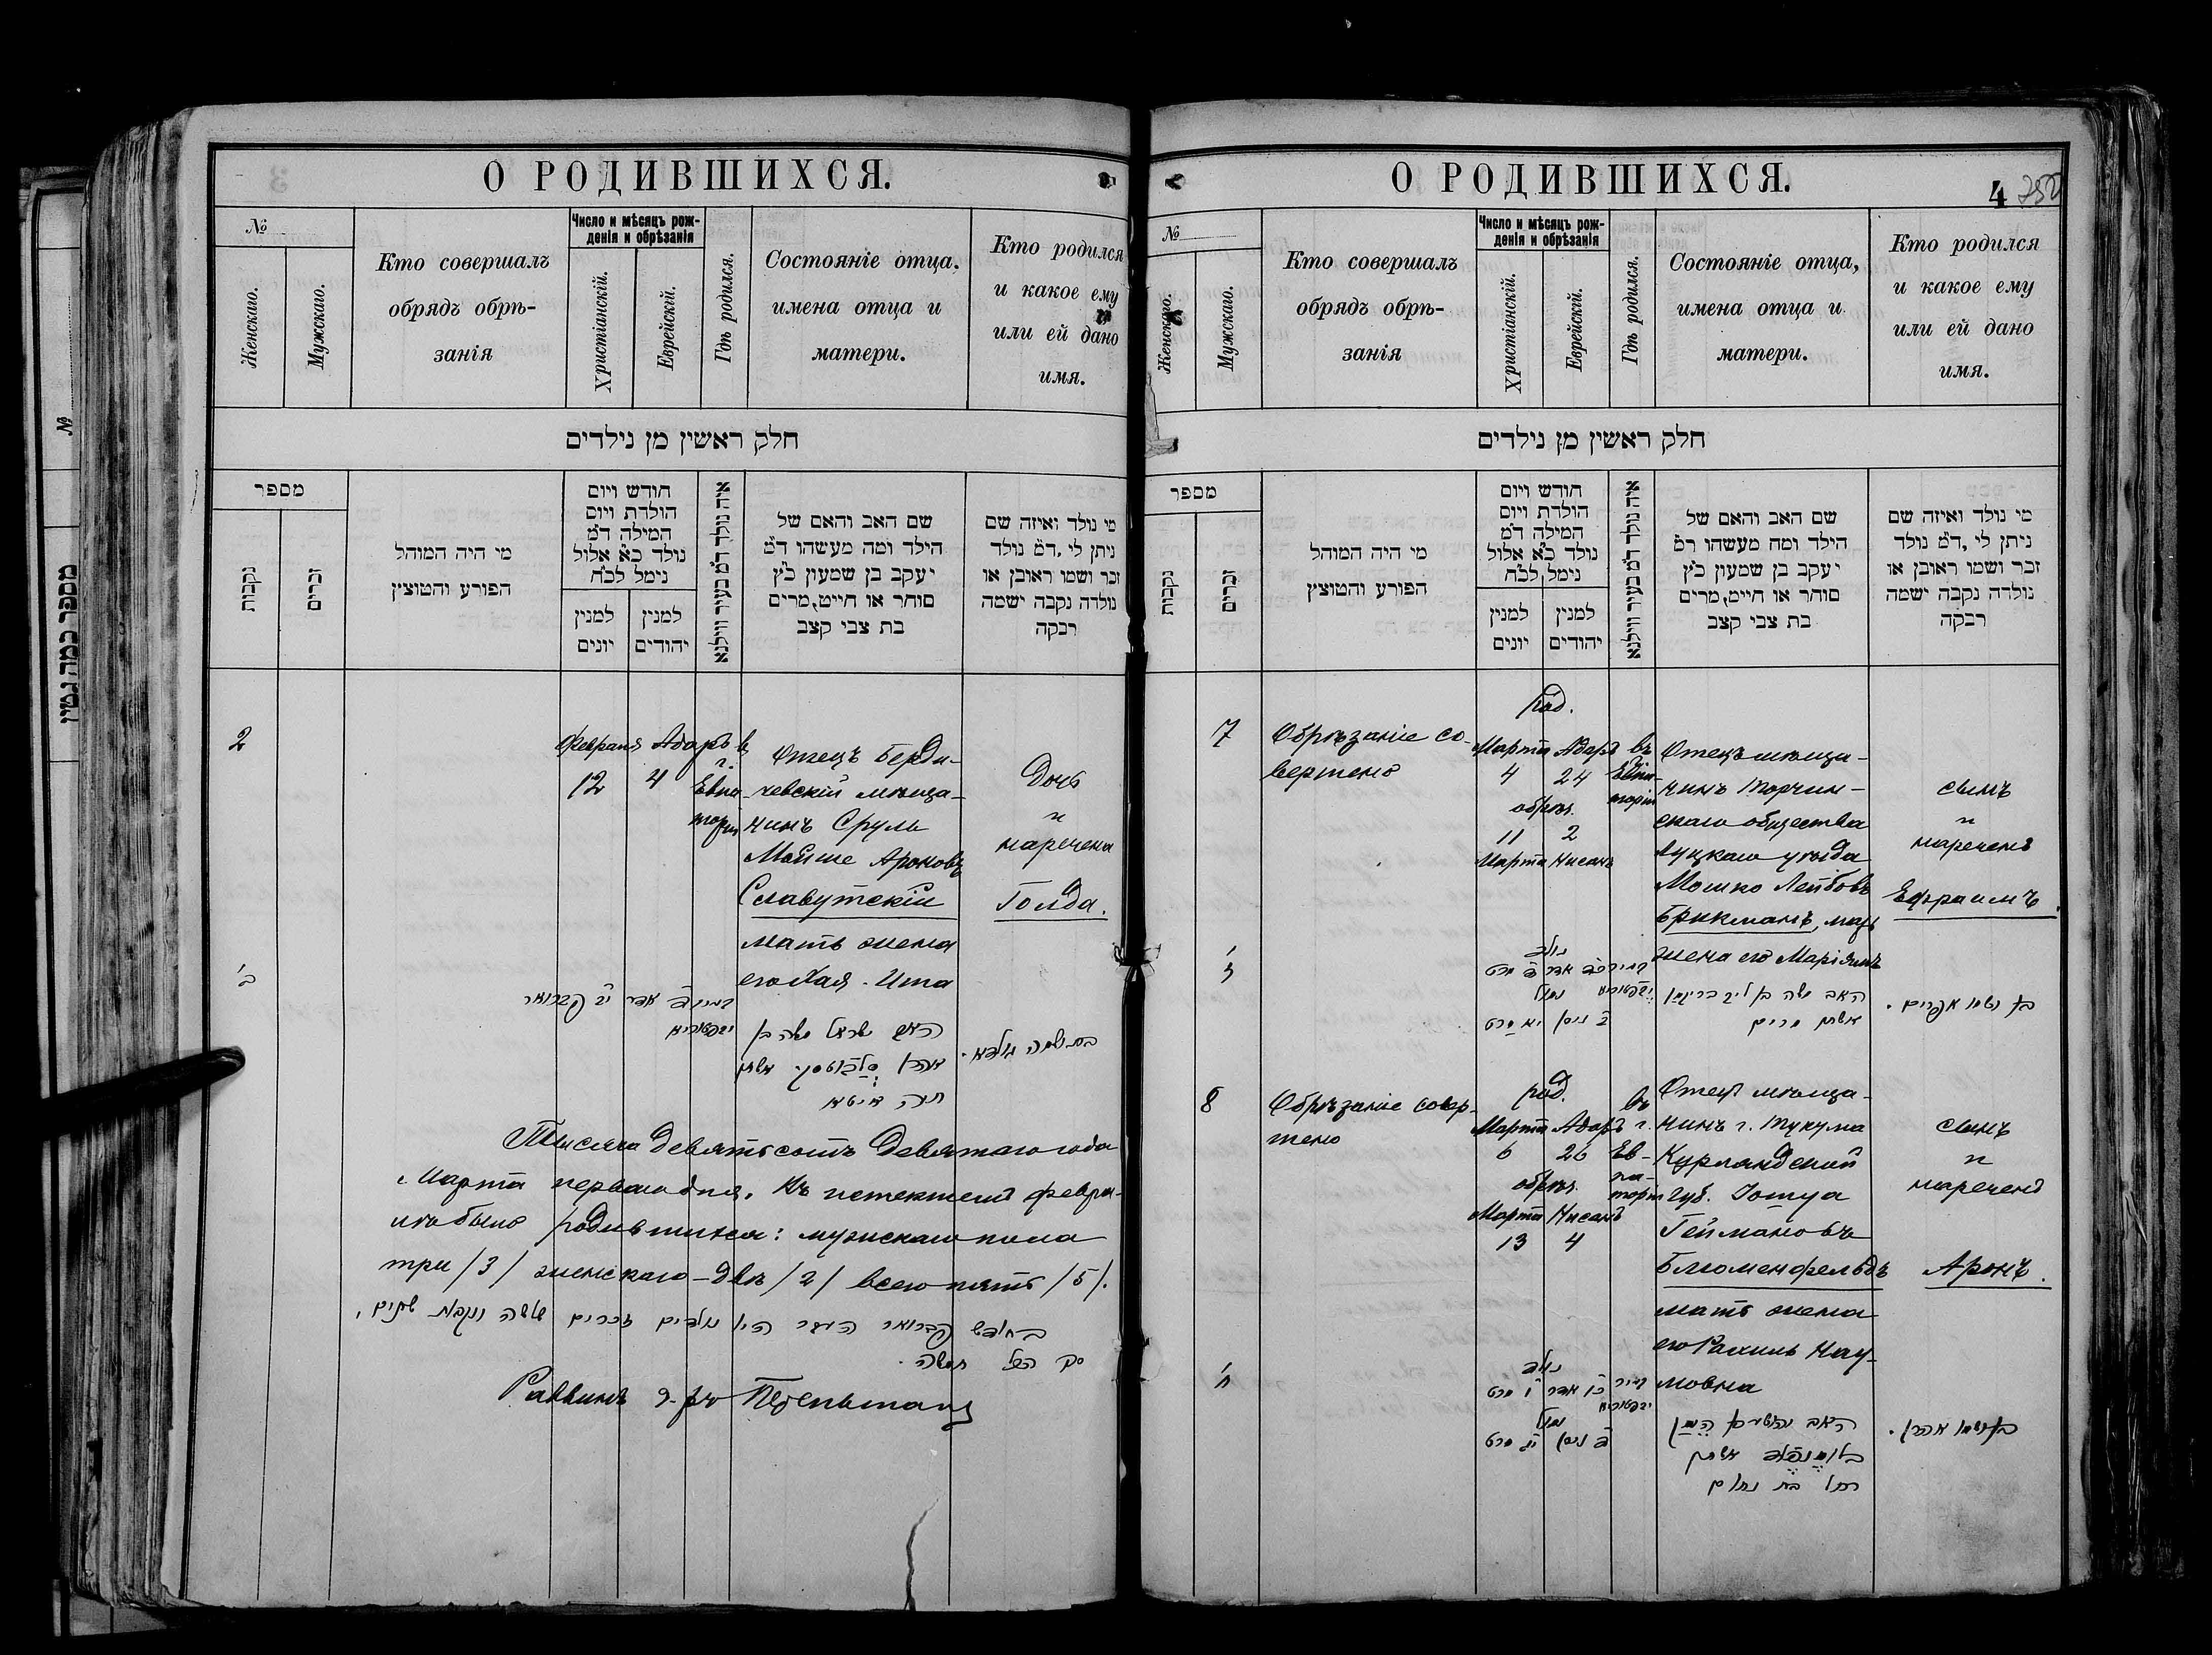 О РОДИВШИХСЯ.
№
Женскаго.
Мужскаго.
Кто совершалъ
обрядъ обрѣ-
занія
Число и мѣсяцъ рож-
денія и обрѣзанія
Христіанскій.
Еврейскій.
Гдѣ родился.
Состояніе отца,
имена отца и
матери.
Кто родился
и какое ему
или ей дано
имя.
חלק ראשון מן נילדים
מספר
נקבות
זכרים
מי היה המוהל
הפורע והמוצץ
חודש ויום
הולדת ויום
המילה ד״מ
נולד כ״א אלול
נימל לכ״ח
למנין
יונים
למנין
יהודים
איה נולד ד״מ בעיר ווילנא
שם האב והאם של
הילד ומה מעשהו ד״מ
יעקב בן שמעון כ״ץ
סוחר או חייט, מרים
בת צבי קצב
מי נולד ואיזה שם
ניתן לי, ד״מ נולד
זכר ושמו ראובן או
נולדה נקבה ישמה
רבקה
2
Февраля Адаръ в
12 4 г. Евпа-
торіи
Отецъ Берди-
чевскій мѣща-
нинъ Сруль
Мойше Ароновъ
Славутскій
мать жена
его Хая-Ита
Дочь
и
наречена
Голда.
ב׳
ד׳ אדר י״ב פברואר
האב ישראל משה בן
אהרן סלבוטסקי אשתו
חיה איטא
בת שמה גולדא.
Тысяча девятьсотъ девятаго года
Марта перваго дня. Въ истекшемъ февра-
лѣ было родившихся: мужскаго пола
три /3/ женскаго - двѣ /2/ всего пять /5/.
בחודש פברואר העבר היו נולדים זכרים שלשה ונקבות שתים,
סך הכל חמשה.
Раввинъ
О РОДИВШИХСЯ.
4
№
Женскаго.
Мужскаго.
Кто совершалъ
обрядъ обрѣ-
занія
Число и мѣсяцъ рож-
денія и обрѣзанія
Христіанскій.
Еврейскій.
Гдѣ родился.
Состояніе отца,
имена отца и
матери.
Кто родился
и какое ему
или ей дано
имя.
חלק ראשון מן נילדים
מספר
נקבות
זכרים
מי היה המוהל
הפורע והמוצץ
חודש ויום
הולדת ויום
המילה ד״מ
נולד כ״א אלול
נימל לכ״ח
למנין
יונים
למנין
יהודים
איה נולד ד״מ בעיר ווילנא
שם האב והאם של
הילד ומה מעשהו ד״מ
יעקב בן שמעון כ״ץ
סוחר או חייט, מרים
בת צבי קצב
מי נולד ואיזה שם
ניתן לי, ד״מ נולד
זכר ושמו ראובן או
נולדה נקבה ישמה
רבקה
7
Обрѣзаніе со-
вершено
род.
Марта Адаръ
4 24
обрѣз.
11 2
Марта Нисанъ
въ
г.
Евпа-
торіи
Отецъ мѣща-
нинъ Торчин-
скаго общества
Луцкаго уѣзда
Мошко Лейбовъ
Брикманъ, мать
жена его Маріямъ
сынъ
и
нареченъ
Ефраимъ.
ז׳
נולד
כ״ד אדר ד׳ מרט
נמול
ב׳ ניסן י״א מרט
האב משה בן ליב בריקמן
אשתו מרים
בן ושמו אפרים.
8
Обрѣзаніе совер-
шено
род.
Марта Адаръ
6 26
обрѣз.
Марта Нисанъ
13 4
въ
г.
Ев-
па-
торіи
Отецъ мѣща-
нинъ г. Тукума
Курляндской
губ. Іошуа
Геймановъ
Блюменфельдъ
мать жена
его Рахиль Нау-
мовна
сынъ
и
нареченъ
Аронъ.
ח׳
נולד
כ״ו אדר ו׳ מרט
נמול
ד׳ ניסן י״ג מרט
האב יהושע בן היימן
בלומנפלד אשתו
רחל בת נחום
בן ושמו אהרן.
מספר כמה גטין